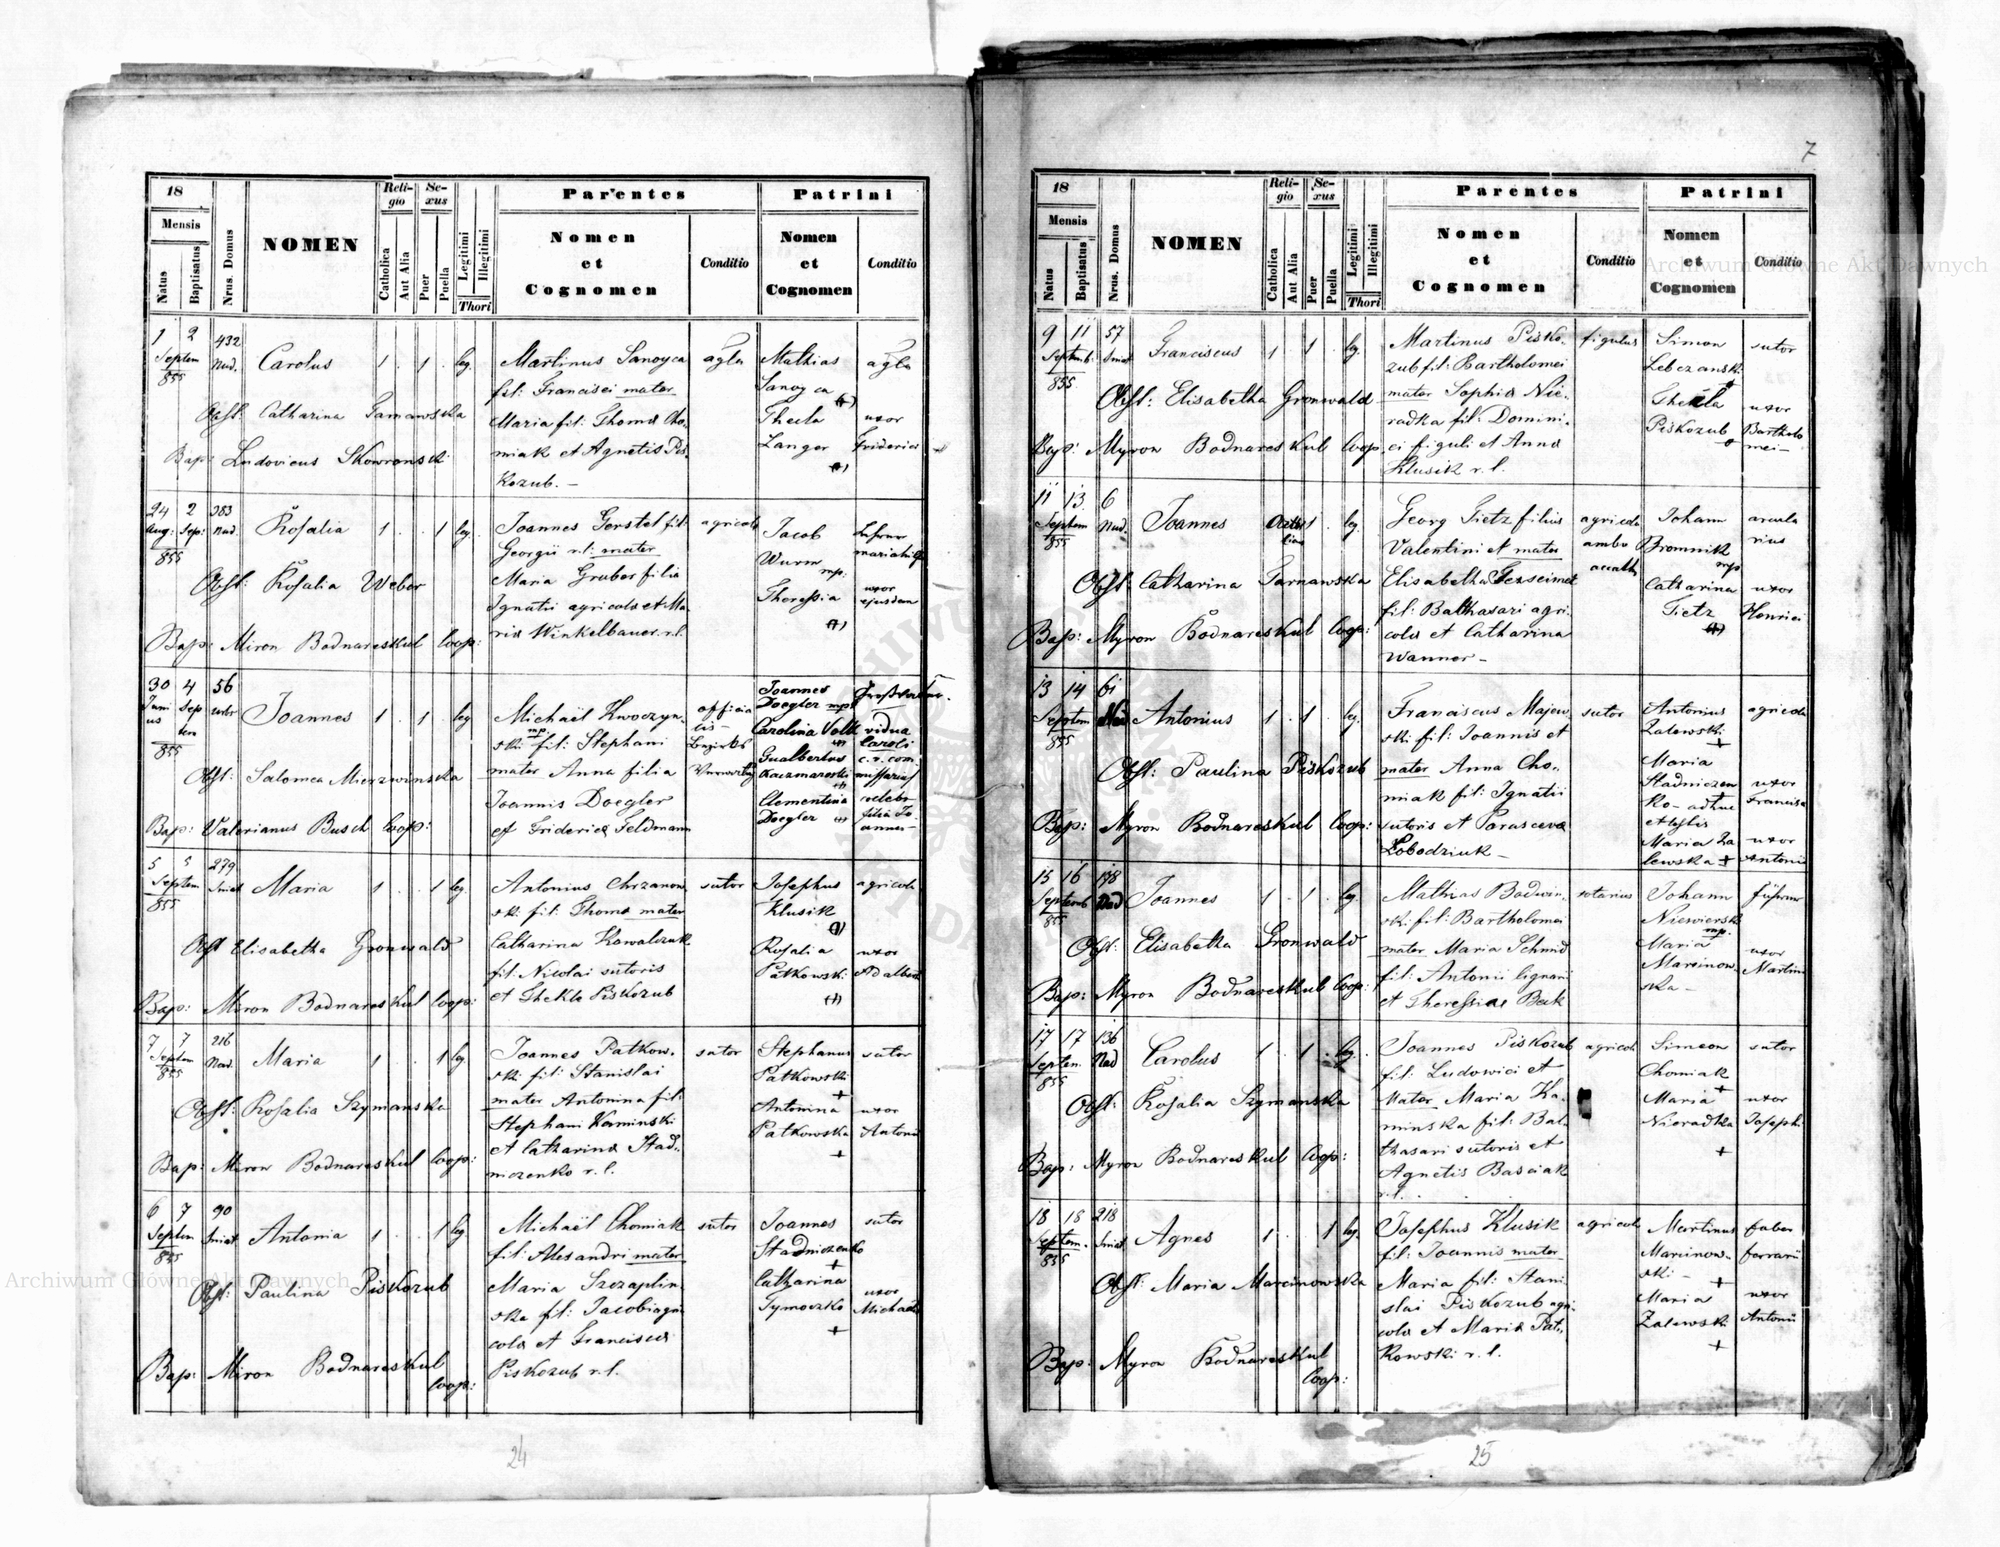 7
18
Mensis
Natus
Baptisatus
Nrus. Domus
NOMEN
Reli-
gio
Catholica
Aut Alia
Se-
xus
Puer
Puella
Legitimi
Illegitimi
Thori
Parentes
Nomen
et
Cognomen
Conditio
Patrini
Nomen
et
Cognomen
Conditio
1 2 432
Septem Nad.
855
Carolus 1 . 1 . leg.
Obst: Catharina Tarnawska
Bap: Ludovicus Skowronski
Martinus Sanoyca
fil: Francisci mater
Maria fil: Thoma Cho-
miak et Agnetis Pis
Kozub. –
agla
Mathias
Sanoyca
(+)
Thecla
Langer
(+)
agla
uxor
Friderici
24 2 383
Aug: Sep: Nad.
855
Rosalia 1 . . 1 leg.
Obst: Rosalia Weber
Bap: Miron Bodnareskul Coop:
Joannes Gerstel fil:
Georgii r.l: mater
Maria Gruber filia
Ignatii agricola et Ma-
ria Winkelbauer. r.l.
agricola
Jacob
Wurm
mp:
Theressia
(+)
uxor
ejusdem
30 4 56
Juni Sep
us tem
855
Joannes 1 . 1 . leg
Obst: Salomea Mierzwinska
Bap: Valerianus Busch Coop:
Michaël Kwoczyn-
mp
ski fil: Stephani
mater Anna filia
Joannis Doegler
et Friderica Feldmann
officia
lis
Bezirks
Joannes
Doegler mp
Carolina Volk
Gualbertus
Kaczmarski
Clementina
Doegler
vidua
Caroli
c. r. com.
missarius
celebs
filia Jo-
annes –
5 5 279
Septem Sniat
855
Maria 1 . . 1 leg.
Obst Elisabetha Gronwald
Bap: Miron Bodnareskul Coop:
Antonius Chrzanow
ski fil: Thoma mater
Catharina Kowalczuk
fil: Nicolai sutoris
et Thekla Piskozub
sutor
Josephus
Klusik
(+)
Rosalia
Patkowski
(+)
agricola
uxor
Adalberti
7 7 216
Septem Nad.
855
Maria 1 . . 1 leg.
Obst: Rosalia Szymanska
Bap: Miron Bodnareskul Coop:
Joannes Patkow-
ski fil: Stanislai
mater Antonina fil:
Stephani Kaminski
et Catharina Stad-
niczenko r.l.
sutor
Stephanus
Patkowski
+
Antonina
Patkowska
+
sutor
uxor
Antonii
6 7 90
Septem Sniat
855
Antonia 1 . . 1 leg
Obst: Paulina Piskozub
Bap: Miron Bodnareskul
Coop:
Michaël Chomiak
fil: Alexandri mater
Maria Szczaplin-
ska fil: Jacobi agri
cola et Francisca
Piskozub r.l.
sutor
Joannes
Stadniczenko
+
Catharina
Tymoczko
+
sutor
uxor
Michaëli
24
18
Mensis
Natus
Baptisatus
Nrus. Domus
NOMEN
Reli-
gio
Catholica
Aut Alia
Se-
xus
Puer
Puella
Legitimi
Illegitimi
Thori
Parentes
Nomen
et
Cognomen
Conditio
Patrini
Nomen
et
Cognomen
Conditio
9 11 57
Septemb. Sniat
855
Franciscus 1 . 1 . leg.
Obst: Elisabetha Gronwald
Bap: Myron Bodnareskul Coop.
Martinus Pisko-
zub fil: Bartholomei
mater Sophia Nie-
radka fil: Domini-
ci figuli et Anna
Klusik r.l.
figulus
Simon
Lebczanski
Thekla
Piskozub
sutor
uxor
Bartholo
mei –
11 13 6
Septem Nad.
855
Joannes 1 . leg.
Obst: Catharina Tarnawska
Bap: Myron Bodnareskul Coop:
Georg Tietz filius
Valentini et mater
Elisabetha
fil: Balthasari agri-
cola et Catharina
Wanner –
agricola
ambo
Johann
Bromnik
mp
Catharina
Tietz
(+)
arcula
rius
uxor
Henrici
13 14 61
Septem
855
Antonius 1 . 1 . leg.
Obst: Paulina Piskozub
Bap: Myron Bodnareskul Coop:
Franciscus Majew
ski fil: Joannis et
mater Anna Cho-
miak fil: Ignatii
sutoris et Parasceva
Lobodziuk –
sutor
Antonius
Zalewski
+
Maria
Stadniczen
ko – adhuc
Maria Za
lewska +
agricola
uxor
Francisci
uxor
Antonii
15 16 198
Septemb Nad
855
Joannes 1 . 1 . leg.
Obst: Elisabetha Gronwald
Bap: Myron Bodnareskul Coop:
Mathias Badwin-
ski fil: Bartholomei
mater Maria Schmid
fil: Antonii lignarii
et Theressiae Beck
rotarius
Johann
Niewierski
mp.
Maria
Marcinow-
ska –
führer
uxor
Martini
17 17 136
Septem. Nad
855
Carolus 1 . 1 . leg.
Obst: Rosalia Szymanska
Bap: Myron Bodnareskul Coop:
Joannes Piskozub
fil: Ludowici et
Mater Maria Ka-
minska fil: Bal
thasari sutoris et
Agnetis Basciak
r.l.
agricola
Simeon
Chomiak
+
Maria
Nieradka
+
sutor
uxor
Josephi
18 18 218
Septem. Sniat
855
Agnes 1 . . 1 leg.
Obst: Maria Marcinowska
Bap: Myron Bodnareskul
Coop:
Josephus Klusik
fil: Joannis mater
Maria fil: Stani
slai Piskozub agri-
cola et Maria Pat-
kowski r.l.
agricola
Martinus
Marcinow-
ski –
+
Maria
Zalewski
+
faber
ferrarii
uxor
Antonii
25
Archiwum Główne Akt Dawnych
Archiwum Główne Akt Dawnych